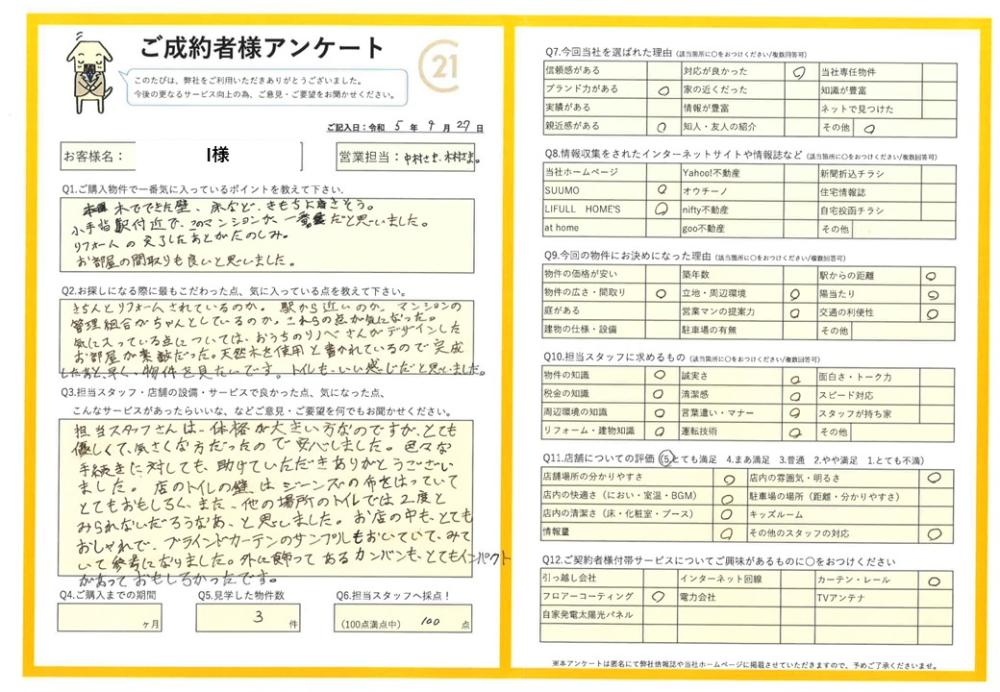 ご成約者様アンケート
このたびは、弊社をご利用いただきありがとうございました。
今後の更なるサービス向上の為、ご意見・ご要望をお聞かせください。
21
ご記入日：令和 5 年 9 月 27 日
お客様名： I様
営業担当： 中村さま。木村さま。
Q1.ご購入物件で一番気に入っているポイントを教えて下さい.
木でできた壁、床など、きもちよさそう。
小手指駅付近で、このマンションが、一番だと思いました。
リフォームの完了したあとがたのしみ。
お部屋の間取りも良いと思いました。
Q2.お探しになる際に最もこだわった点、気に入っている点を教えて下さい。
きちんとリフォームされているのか。駅から近いのか、マンションの
管理組合がちゃんとしているのか、これらの点が気になった。
気に入っている点については、おうちのリノベさんがデザインした
お部屋が素敵だった。天然木を使用と書かれているので完成
したあと、早く、物件を見たいです。トイレも、いい感じだと思いました。
Q3.担当スタッフ・店舗の設備・サービスで良かった点、気になった点、
こんなサービスがあったらいいな、などご意見・ご要望を何でもお聞かせください。
担当スタッフさんは、体格が大きい方なのですが、とても
優しくて、気さくな方だったので安心しました。色々な
手続きに対しても、助けていただきありがとうござい
ました。店のトイレの壁はジーンズの布をはっていて
とてもおもしろく、また、他の場所のトイレでは2度と
みられないだろうなあ、と思いました。お店の中も、とても
おしゃれで、ブラインドカーテンのサンプルもおいていて、みて
いて参考になりました。外に飾ってあるカンバンも、とてもインパクト
があっておもしろかったです。
Q4.ご購入までの期間
ヶ月
Q5.見学した物件数
3 件
Q6.担当スタッフへ採点！
(100点満点中) 100 点
Q7.今回当社を選ばれた理由（該当箇所に○をおつけください/複数回答可）
信頼感がある 対応が良かった ○ 当社専任物件
ブランド力がある ○ 家の近くだった 知識が豊富
実績がある 情報が豊富 ネットで見つけた
親近感がある ○ 知人・友人の紹介 その他 ○
Q8.情報収集をされたインターネットサイトや情報誌など（該当箇所に○をおつけください/複数回答可）
当社ホームページ Yahoo!不動産 新聞折込チラシ
SUUMO ○ オウチーノ 住宅情報誌
LIFULL HOME'S ○ nifty不動産 自宅投函チラシ
at home goo不動産 その他
Q9.今回の物件にお決めになった理由（該当箇所に○をおつけください/複数回答可）
物件の価格が安い 築年数 駅からの距離 ○
物件の広さ・間取り ○ 立地・周辺環境 ○ 陽当たり ○
庭がある 営業マンの提案力 ○ 交通の利便性 ○
建物の仕様・設備 駐車場の有無 その他
Q10.担当スタッフに求めるもの（該当箇所に○をおつけください/複数回答可）
物件の知識 ○ 誠実さ ○ 面白さ・トーク力
税金の知識 ○ 清潔感 ○ スピード対応
周辺環境の知識 ○ 言葉遣い・マナー ○ スタッフが持ち家
リフォーム・建物知識 ○ 運転技術 ○ その他
Q11.店舗についての評価（5.とても満足 4.まあ満足 3.普通 2.やや満足 1.とても不満）
店舗場所の分かりやすさ ○ 店内の雰囲気・明るさ ○
店内の快適さ（におい・室温・BGM） ○ 駐車場の場所（距離・分かりやすさ）
店内の清潔さ（床・化粧室・ブース） ○ キッズルーム
情報量 ○ その他のスタッフの対応 ○
Q12.ご契約者様付帯サービスについてご興味があるものに○をおつけください
引っ越し会社 インターネット回線 カーテン・レール ○
フロアーコーティング ○ 電力会社 TVアンテナ
自家発電太陽光パネル
※本アンケートは匿名にて弊社情報誌や当社ホームページに掲載させていただきますので、予めご了承くださいませ。